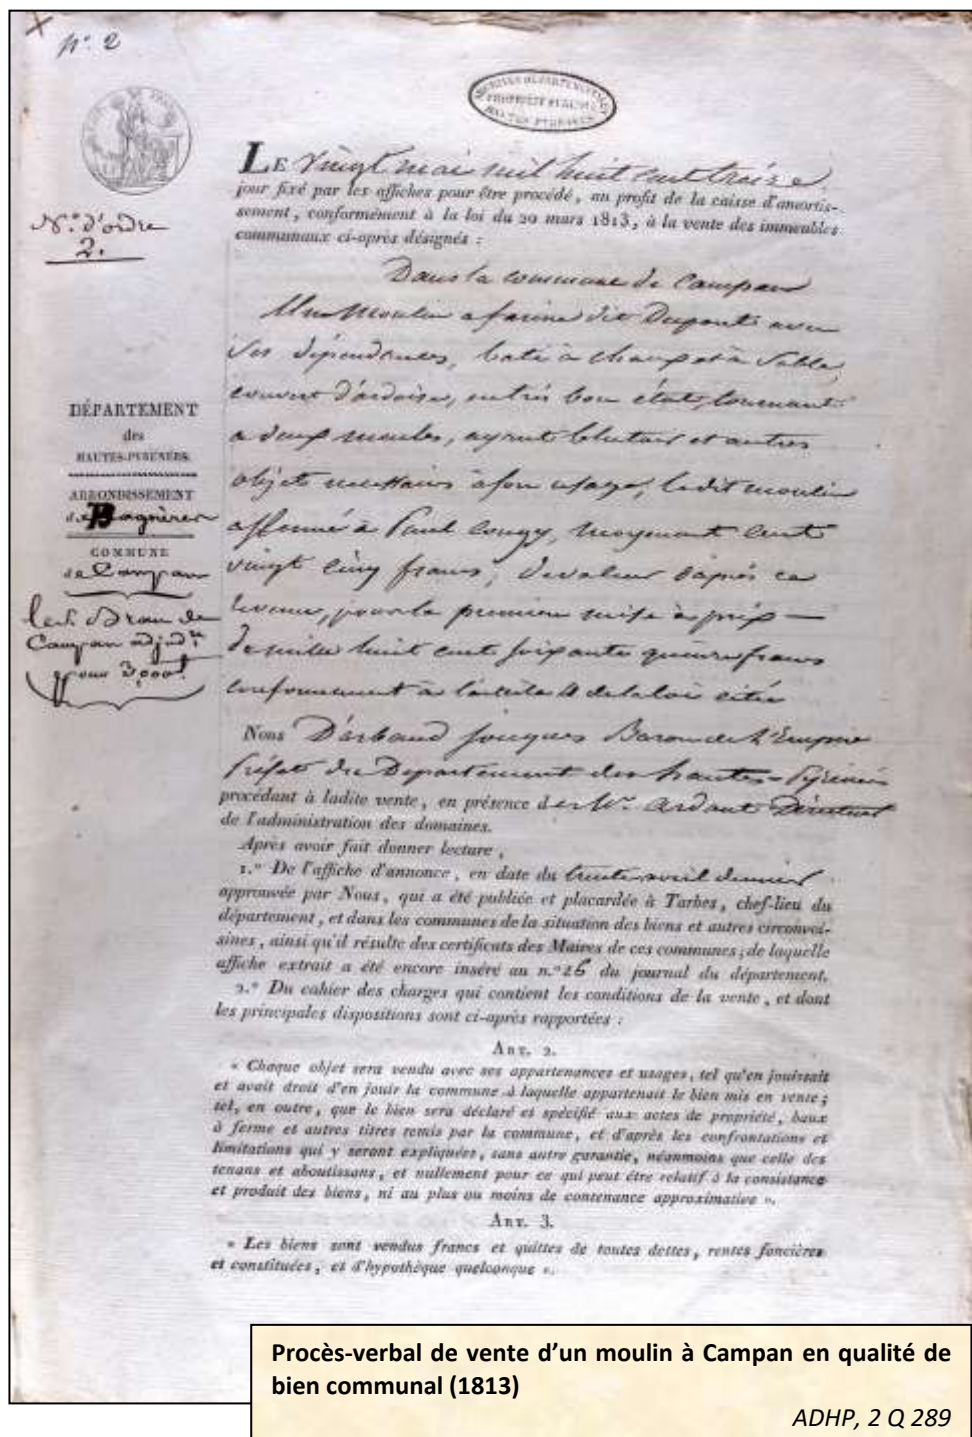 n.º 2
ARCHIVES DÉPARTEMENTALES
PROPRIÉTÉ PUBLIQUE
HAUTES PYRÉNÉES
LE Vingt mai mil huit cent treize,
jour fixé par les affiches pour être procédé, au profit de la caisse d'amortis-
sement, conformément à la loi du 20 mars 1813, à la vente des immeubles
communaux ci-après désignés :
N.º d'ordre
2.
Dans la commune de Campan
Un Moulin a farine dit Dupont avec
ses dépendances, bati à chaux et à sable,
couvert d'ardoise, en très bon état, tournant
a deux meules, ayant blutoir et autres
objets necessaires à son usage, ledit moulin
affermé à Paul Cougy, moyennant cent
vingt cinq francs, de valeur d'après ce
revenu, pour la premiere mise à prix —
de mille huit cent soixante quinze francs
conformement à l'article 4 de la loi citée
DÉPARTEMENT
des
HAUTES-PYRÉNÉES.
ARRONDISSEMENT
de Bagnères
COMMUNE
de Campan
Brau de
Campan adjud.re
pour 3,000f
Nous D'arbaud Jouques Baron de l'Empire
Préfet du Département des hautes-Pyrénées
procédant à ladite vente, en présence de Mr. Ardant Directeur
de l'administration des domaines.
Après avoir fait donner lecture,
1.º De l'affiche d'annonce, en date du trente avril dernier
approuvée par Nous, qui a été publiée et placardée à Tarbes, chef-lieu du
département, et dans les communes de la situation des biens et autres circonvoi-
sines, ainsi qu'il résulte des certificats des Maires de ces communes; de laquelle
affiche extrait a été encore inséré au n.º 26 du journal du département.
2.º Du cahier des charges qui contient les conditions de la vente, et dont
les principales dispositions sont ci-après rapportées :
ART. 2.
« Chaque objet sera vendu avec ses appartenances et usages, tel qu'en jouissait
et avait droit d'en jouir la commune à laquelle appartenait le bien mis en vente;
tel, en outre, que le bien sera déclaré et spécifié aux actes de propriété, baux
à ferme et autres titres remis par la commune, et d'après les confrontations et
limitations qui y seront expliquées, sans autre garantie, néanmoins que celle des
tenans et aboutissans, et nullement pour ce qui peut être relatif à la consistance
et produit des biens, ni au plus ou moins de contenance approximative ».
ART. 3.
« Les biens sont vendus francs et quittes de toutes dettes, rentes foncières
et constituées, et d'hypothèque quelconque ».
Procès-verbal de vente d'un moulin à Campan en qualité de
bien communal (1813)
ADHP, 2 Q 289